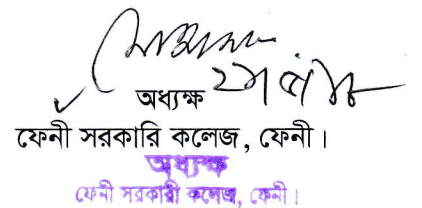 অধ্যক্ষ
ফেনী সরকারি কলেজ, ফেনী।
অধ্যক্ষ
ফেনী সরকারী কলেজ, ফেনী।